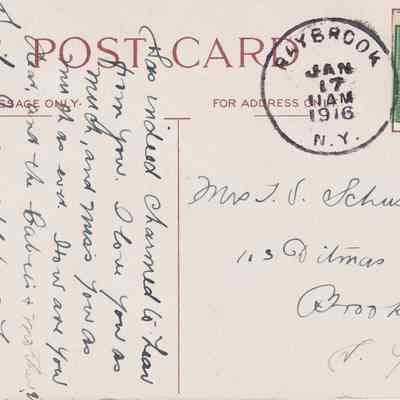 POST CARD
SSAGE ONLY-
FOR ADDRESS ON
RAYBROOK
JAN
17
11 AM
1916
N.Y.
Was indeed charmed to hear
from you. I love you as
much, and miss you as
much as ever. How are you
dear, and the Babies & mother?
Mrs T. S. Schus
113 Ditmas
Brook
N. Y